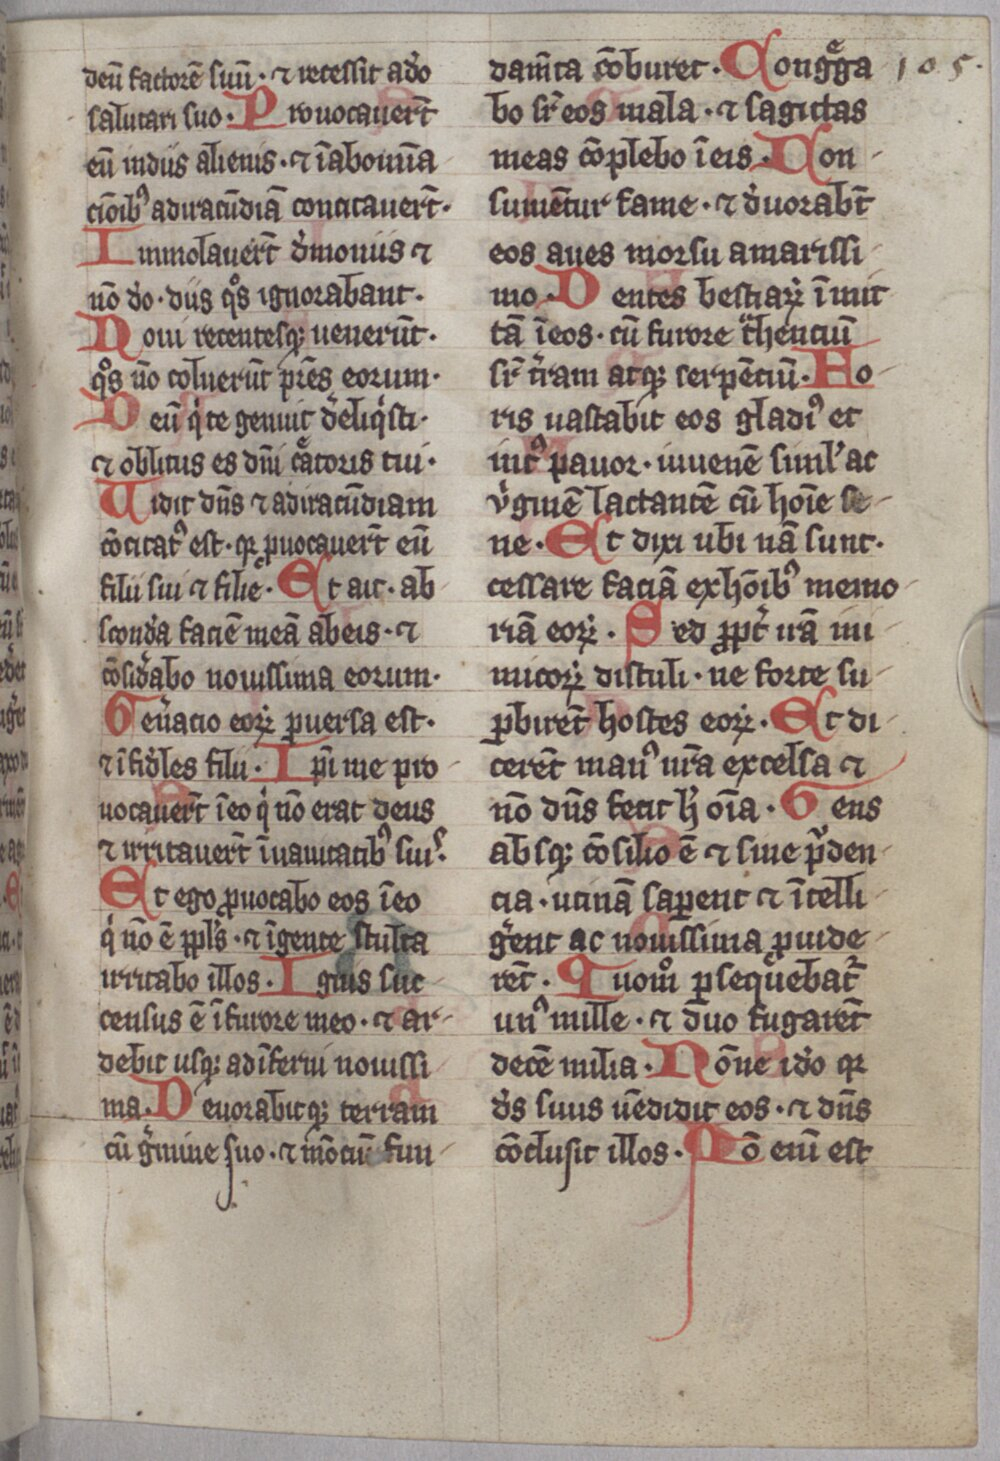 deū factorē suū · ⁊ recessit ado
salutari suo · Prouocauert̄
eū indiis alienis · ⁊ īabomīa
cioīb⁹ adiracūdiā concitauert̄ ·
Immolauert̄ d̓moniis ⁊
nō d̓o · diis qͦs ignorabant ·
Noui recentesqꝫ uenerūt ·
qͦs nō coluerūt pr̄es eorum ·
Deū qͥ te genuit d̓eliqͥsti ·
⁊ oblitus es dn̄i cͣtoris tui ·
Uidit dn̄s ⁊ adiracūdiam
cōcitat⁹ est · qꝛ ꝓuocauert̄ eū
filii sui ⁊ filie · Et ait · ab
scond̓a faciē meā abeis · ⁊
cōsid̓abo nouissima eorum ·
Gen̓atio eoꝝ ꝑuersa est ·
⁊ īfid̓les filii · Ip̄i me pro
uocauert̄ īeo qͥ nō erat deus
⁊ irritauert̄ īuanitatib⁹ suis ·
Et ego ꝓuocabo eos īeo
qͥ nō ē ppl̓s · ⁊ īgente stulta
irritabo illos · Ignis suc
census ē ī furore meo · ⁊ ar
debit usqꝫ adīferni nouissi
ma · Deuorabitqꝫ terram
cū g̓mine suo · ⁊ mōtiū fun
dam̄ta cōburet · Congͣga
105 ·
bo sr̄ eos mala · ⁊ sagittas
meas cōplebo īeis · Con
sumētur fame · ⁊ d̓uorabt̄
eos aues morsu amarissi
mo · Dentes bestiaꝝ īmit
tā īeos · cū furore tͣhentiū
sr̄ t̓ram atqꝫ serpētiū · Fo
ris uastabit eos gladi⁹ et
int⁹ pauor · iuuenē simĺ ac
v̓ginē lactantē cū hoīe se
ne · Et dixi ubi nā sunt ·
cessare faciā exhōib⁹ memo
riā eoꝝ · Sed ꝓpt̓ irā ini
micoꝝ distuli · ne forte su
ꝑbirēt hostes eoꝝ · Et di
cerēt man⁹ nr̄a excelsa ⁊
nō dn̄s fecit h̓ oīa · Gens
absqꝫ cōsilio ē ⁊ sine pͥden
cia · utinā saꝑent ⁊ ītelli
g̓ent ac nouissima ꝓuide
rēt · Quom̊ ꝑsequ̓ebat̄
un⁹ mille · ⁊ duo fugarēt
decē milia · Nōne id̓o qꝛ
d̄s suus uēdidit eos · ⁊ dn̄s
cōclusit illos · Nō enī est